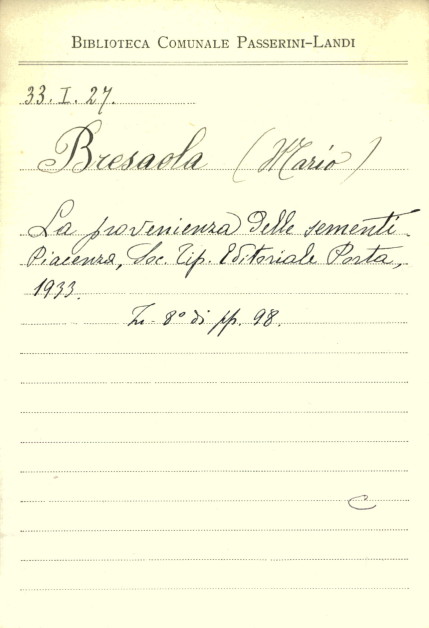 BIBLIOTECA COMUNALE PASSERINI-LANDI
33. I. 27.
Bresaola (Mario)
La provenienza delle sementi.
Piacenza, Soc. Tip. Editoriale Porta,
1933.
In-8° di pp. 98.
C